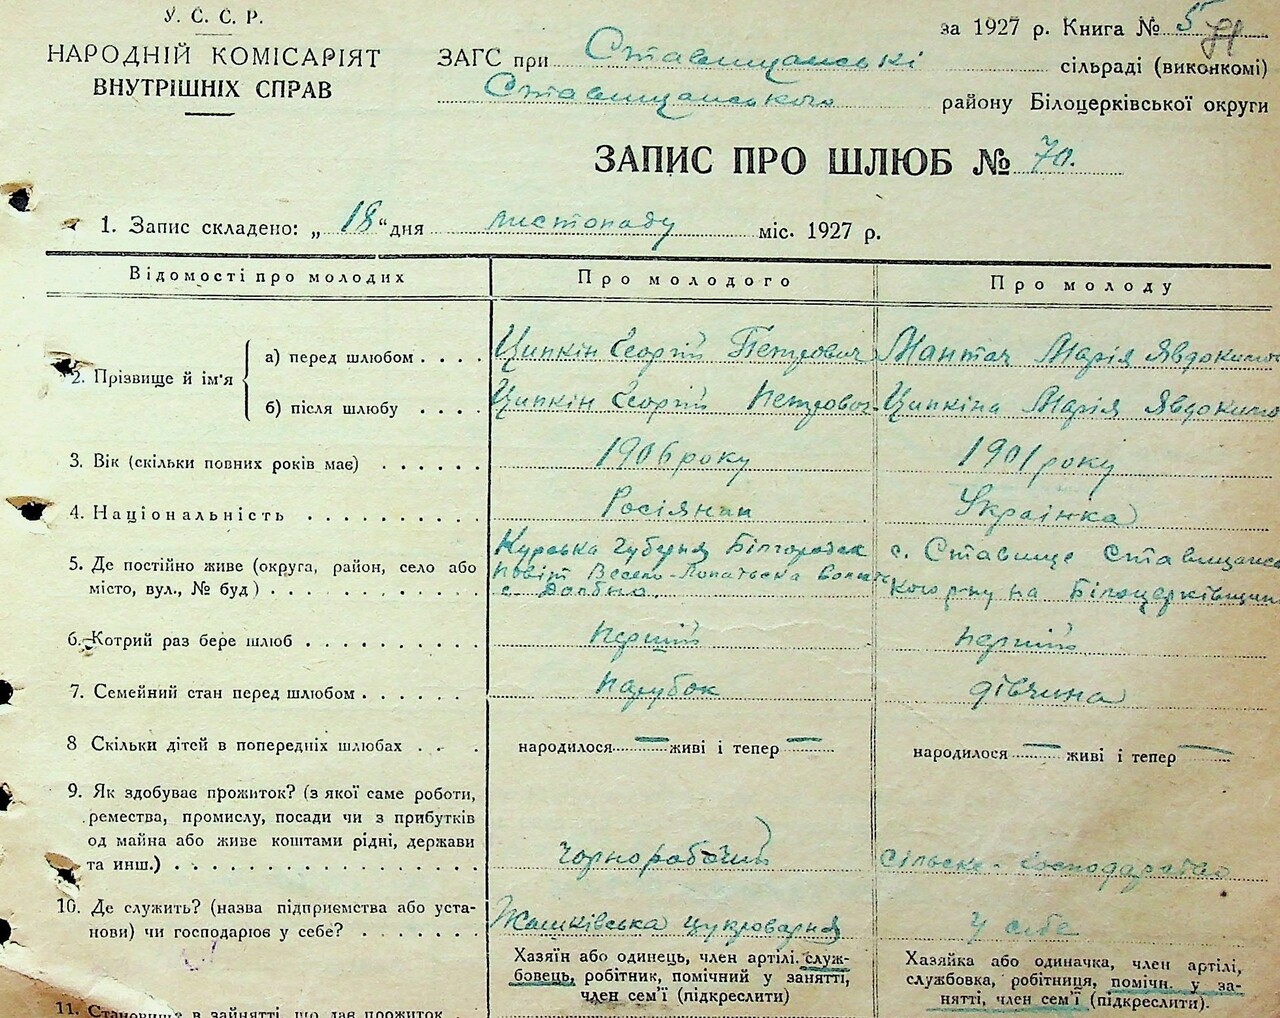 У. С. С. Р.
НАРОДНІЙ КОМІСАРІЯТ
ВНУТРІШНІХ СПРАВ
за 1927 р. Книга № 5
ЗАГС при Ставищанські сільраді (виконкомі)
Ставищанського району Білоцерківської округи
ЗАПИС ПРО ШЛЮБ № 70.
1. Запис складено: „ 18 “ дня листопаду міс. 1927 р.
Відомості про молодих Про молодого Про молоду
2. Прізвище й ім'я
а) перед шлюбом . . . . Ципкін Георгій Петрович Мантач Марія Явдокимо
б) після шлюбу . . . . Ципкін Георгій Петрович Ципкіна Марія Явдокимо
3. Вік (скільки повних років має) . . . . . . 1906 року 1901 року
4. Національність . . . . . . . . . . Росіянин Українка
5. Де постійно живе (округа, район, село або місто, вул., № буд) . . . . . . . . . . . .
Курська Губерня Білгородск
повіт Весело-Лопатьска Волость
с. Долбна.
с. Ставище Ставищанс
кого р-ну на Білоцерківщин
6. Котрий раз бере шлюб . . . . . . . . . . перший перший
7. Семейний стан перед шлюбом . . . . . . . парубок дівчина
8 Скільки дітей в попередніх шлюбах . . . народилося — живі і тепер — народилося — живі і тепер —
9. Як здобуває прожиток? (з якої саме роботи,
ремества, промислу, посади чи з прибутків
од майна або живе коштами рідні, держави
та инш.) . . . . . . . . . . . . . . . . Чорноробочий Сільське-господарство
10. Де служить? (назва підприємства або уста-
нови) чи господарює у себе? . . . . . . . Жашківська цукроварня У себе
Хазяїн або одинець, член артілі. служ-
бовець, робітник, помічний у занятті,
член сем'ї (підкреслити)
Хазяйка або одиначка, член артілі,
службовка, робітниця, помічн. у за-
нятті, член сем'ї (підкреслити).
11. Становище в зайнятті, що дає прожиток